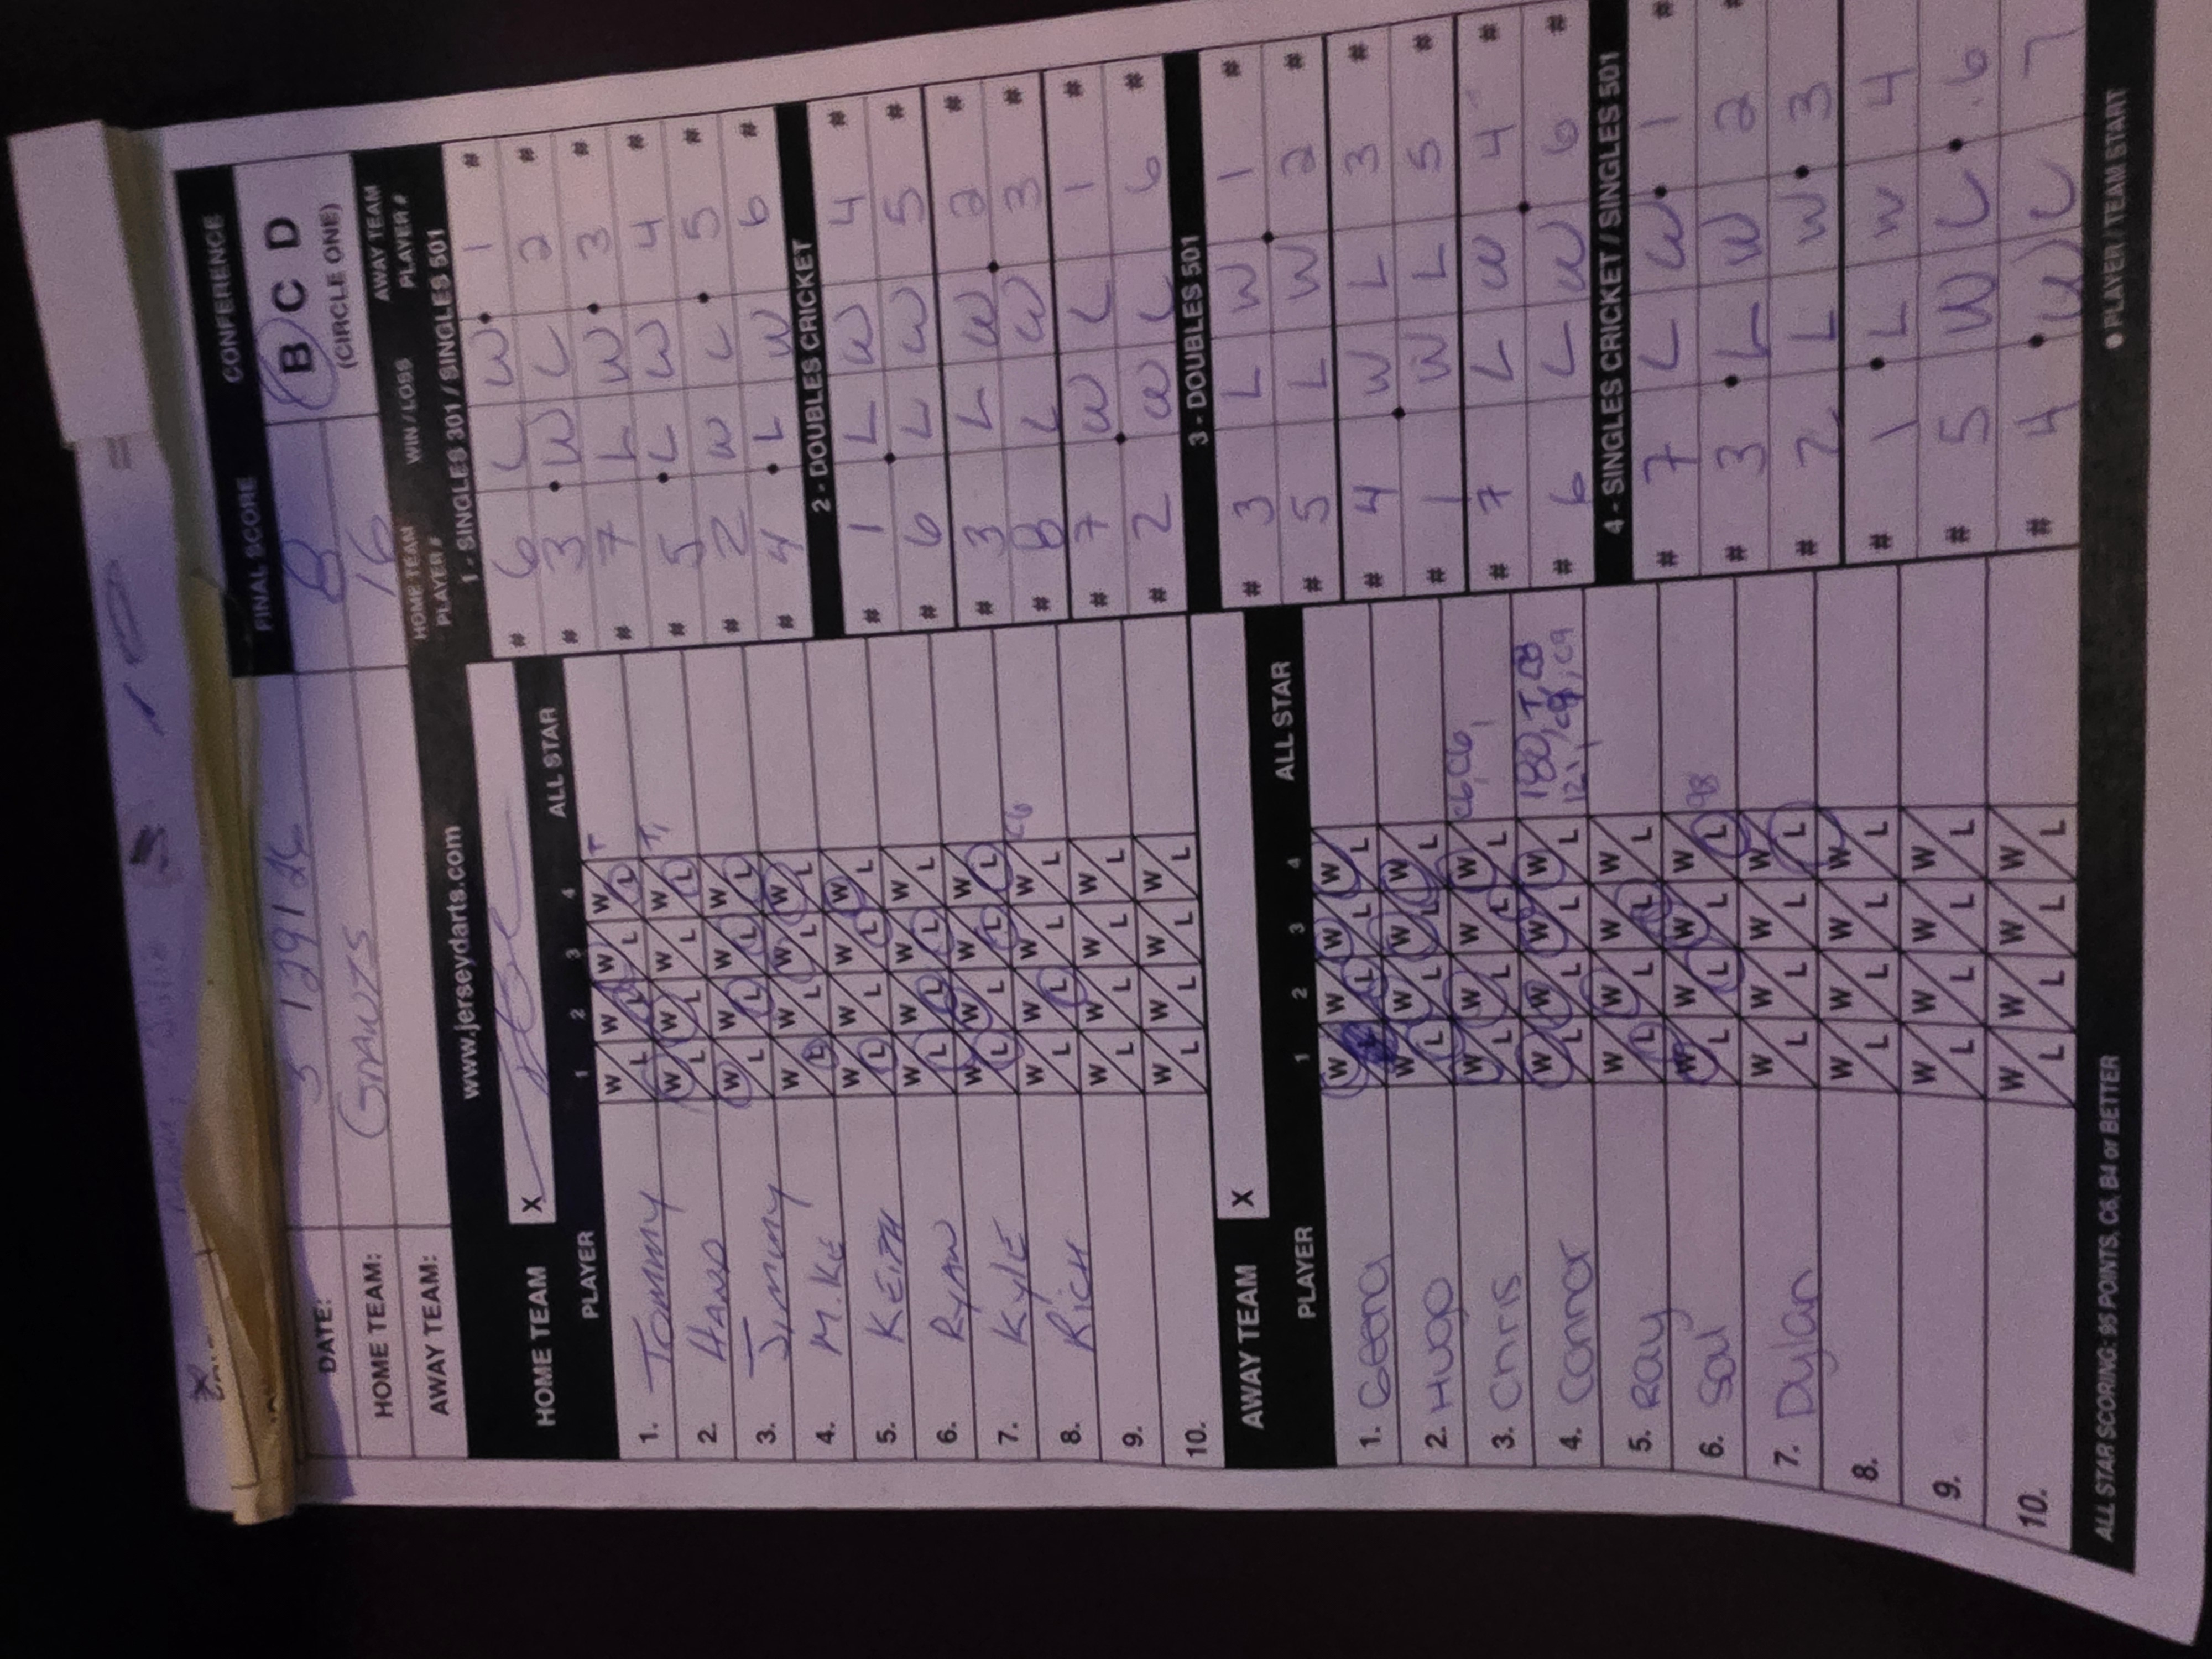 FINAL SCORE CONFERENCE
DATE: 5 129126 8 B C D
HOME TEAM: GIANTS 16 (CIRCLE ONE)
AWAY TEAM: HOME TEAM PLAYER # WIN / LOSS AWAY TEAM PLAYER #
www.jerseydarts.com
HOME TEAM X
PLAYER 1 2 3 4 ALL STAR
1. TOMMY W L W L W L W L T
2. HANO W L W L W L W L T,
3. JIMMY W L W L W L W L
4. MIKE W L W L W L W L
5. KEITH W L W L W L W L
6. RYAN W L W L W L W L
7. KYLE W L W L W L W L C6
8. RICH W L W L W L W L
9. W L W L W L W L
10. W L W L W L W L
AWAY TEAM X
PLAYER 1 2 3 4 ALL STAR
1. Geena W L W L W L W L
2. Hugo W L W L W L W L
3. Chris W L W L W L W L C6, C6,
4. Connor W L W L W L W L 180, T, C8
121, C9, C9
5. Ray W L W L W L W L
6. Sal W L W L W L W L 98
7. Dylan W L W L W L W L
8. W L W L W L W L
9. W L W L W L W L
10. W L W L W L W L
1 - SINGLES 301 / SINGLES 501
# 6 L W • 1 #
# 3 • W L 2 #
# 7 L W • 3 #
# 5 • L W 4 #
# 2 W L • 5 #
# 4 • L W 6 #
2 - DOUBLES CRICKET
# 1 L W 4 #
# 6 • L W 5 #
# 3 L W 2 #
# 8 L W • 3 #
# 7 W L 1 #
# 2 • W L 6 #
3 - DOUBLES 501
# 3 L W 1 #
# 5 L W • 2 #
# 4 W L 3 #
# 1 • W L 5 #
# 7 L W 4 #
# 6 L W • 6 #
4 - SINGLES CRICKET / SINGLES 501
# 7 L W • 1 #
# 3 • L W 2 #
# 2 L W • 3
# 1 • L W 4
# 5 W L • 6
# 4 • W L 7
ALL STAR SCORING: 95 POINTS, C6, B4 or BETTER
● PLAYER / TEAM START